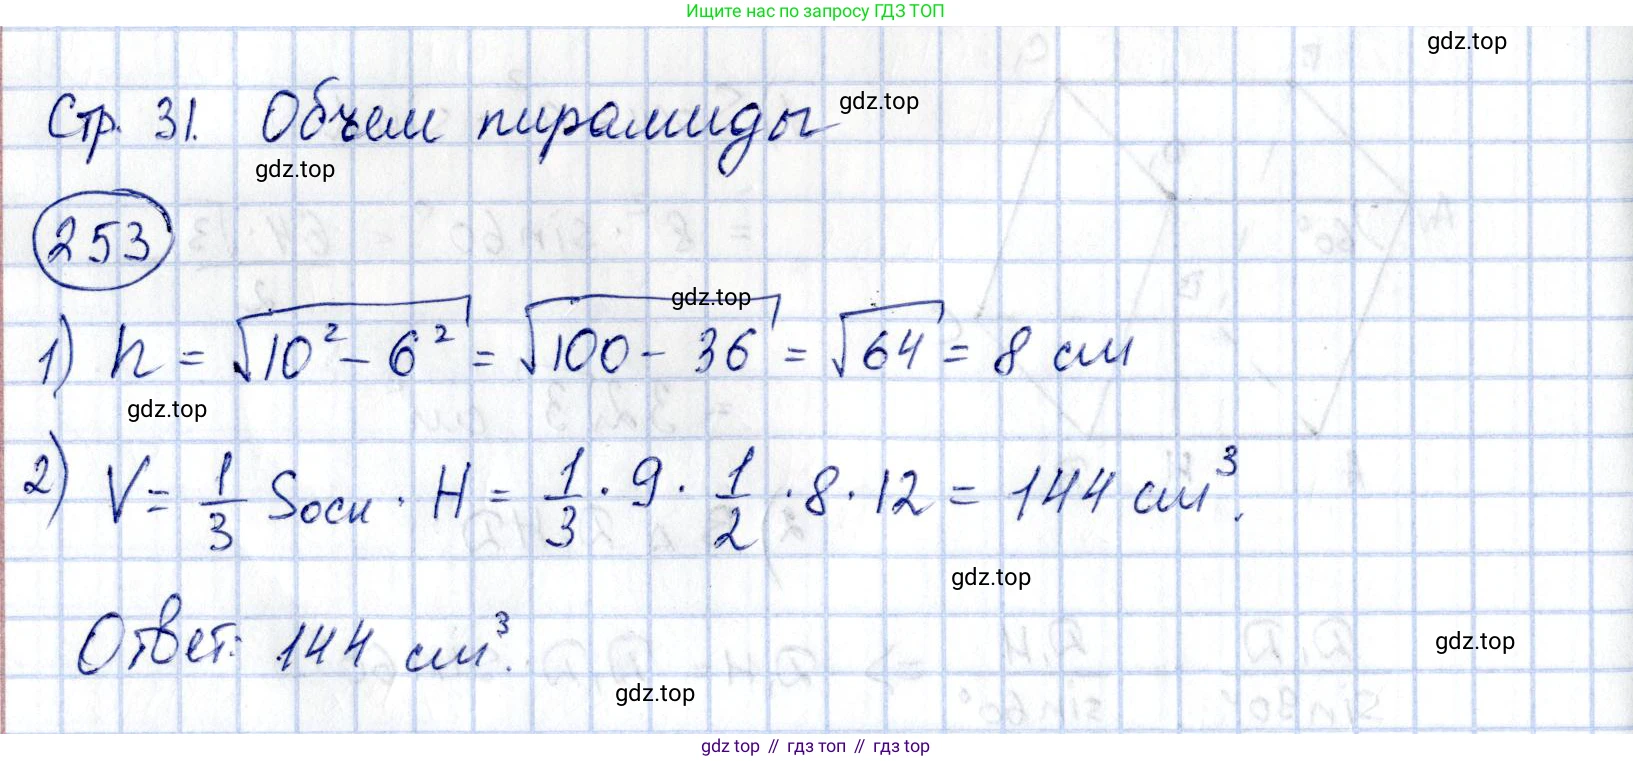 Ищите нас по запросу ГДЗ ТОП
gdz.top
Стр. 31. Объем пирамиды
gdz.top
gdz.top
253
gdz.top
1) h = √10² - 6² = √100 - 36 = √64 = 8 см
gdz.top
2) V = 1/3 Sосн · H = 1/3 · 9 · 1/2 · 8 · 12 = 144 см³.
gdz.top
Ответ: 144 см³.
gdz.top
gdz.top
gdz top // гдз топ // гдз top